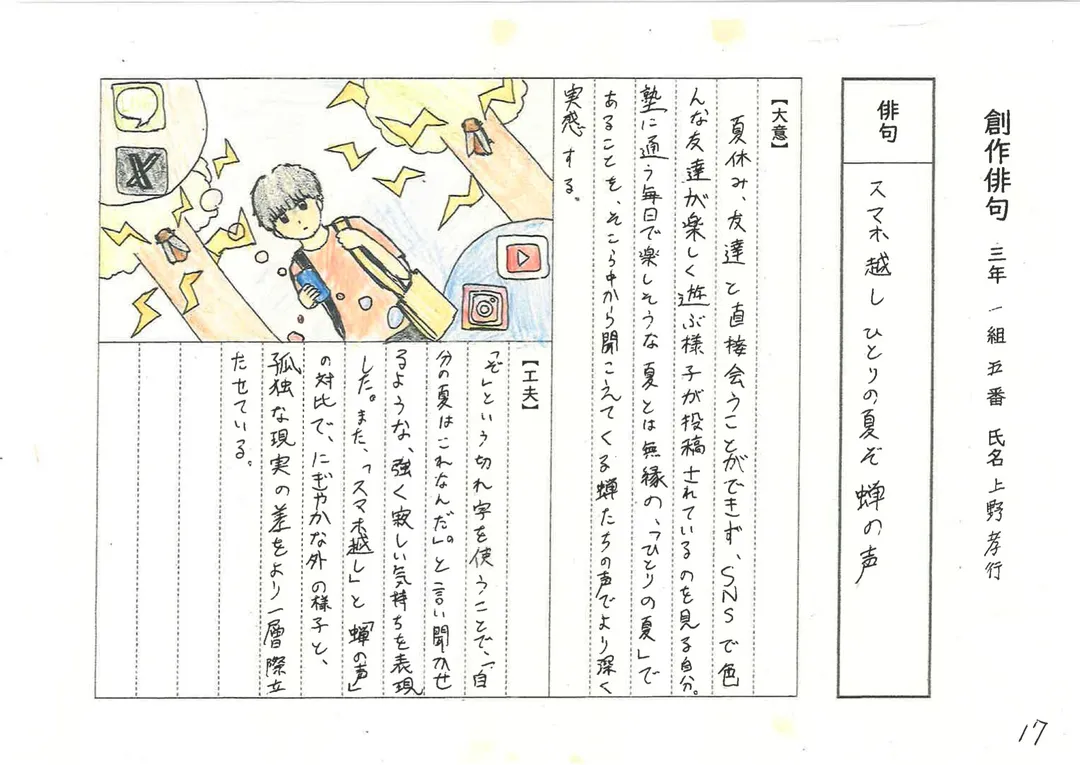 創作俳句 三年 一組 五番 氏名 上野孝行
俳句
スマホ越し ひとりの夏ぞ 蝉の声
【大意】
夏休み、友達と直接会うことができず、SNSで色
んな友達が楽しく遊ぶ様子が投稿されているのを見る自分。
塾に通う毎日で楽しそうな夏とは無縁の、「ひとりの夏」で
あることを、そこら中から聞こえてくる蝉たちの声でより深く
実感する。
【工夫】
「ぞ」という切れ字を使うことで、「自
分の夏はこれなんだ」。と言い聞かせ
るような、強く寂しい気持ちを表現
した。また、「スマホ越し」と「蝉の声」
の対比で、にぎやかな外の様子と、
孤独な現実の差をより一層際立
たせている。
LINE
X
17